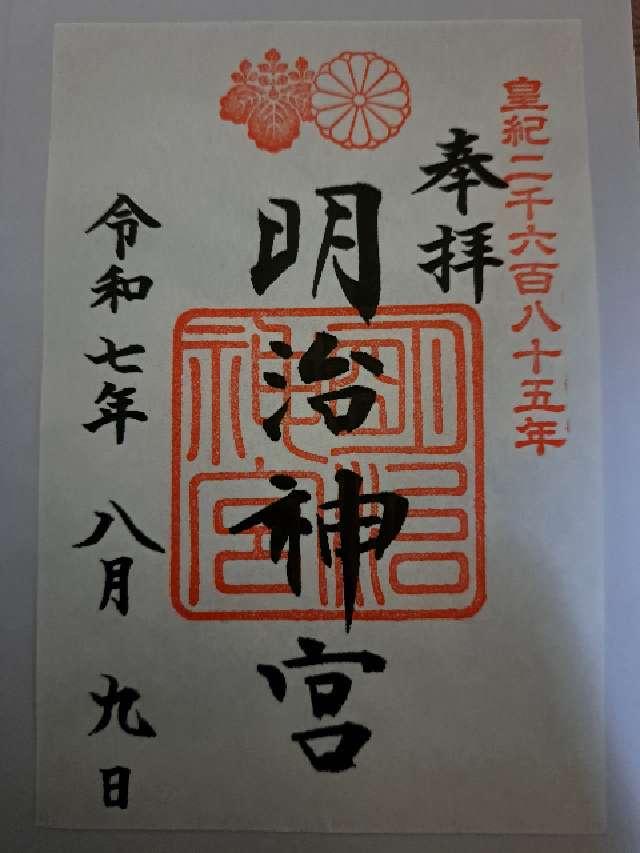 皇紀二千六百八十五年
奉拝
明治神宮
明治神宮
令和七年 八月 九日